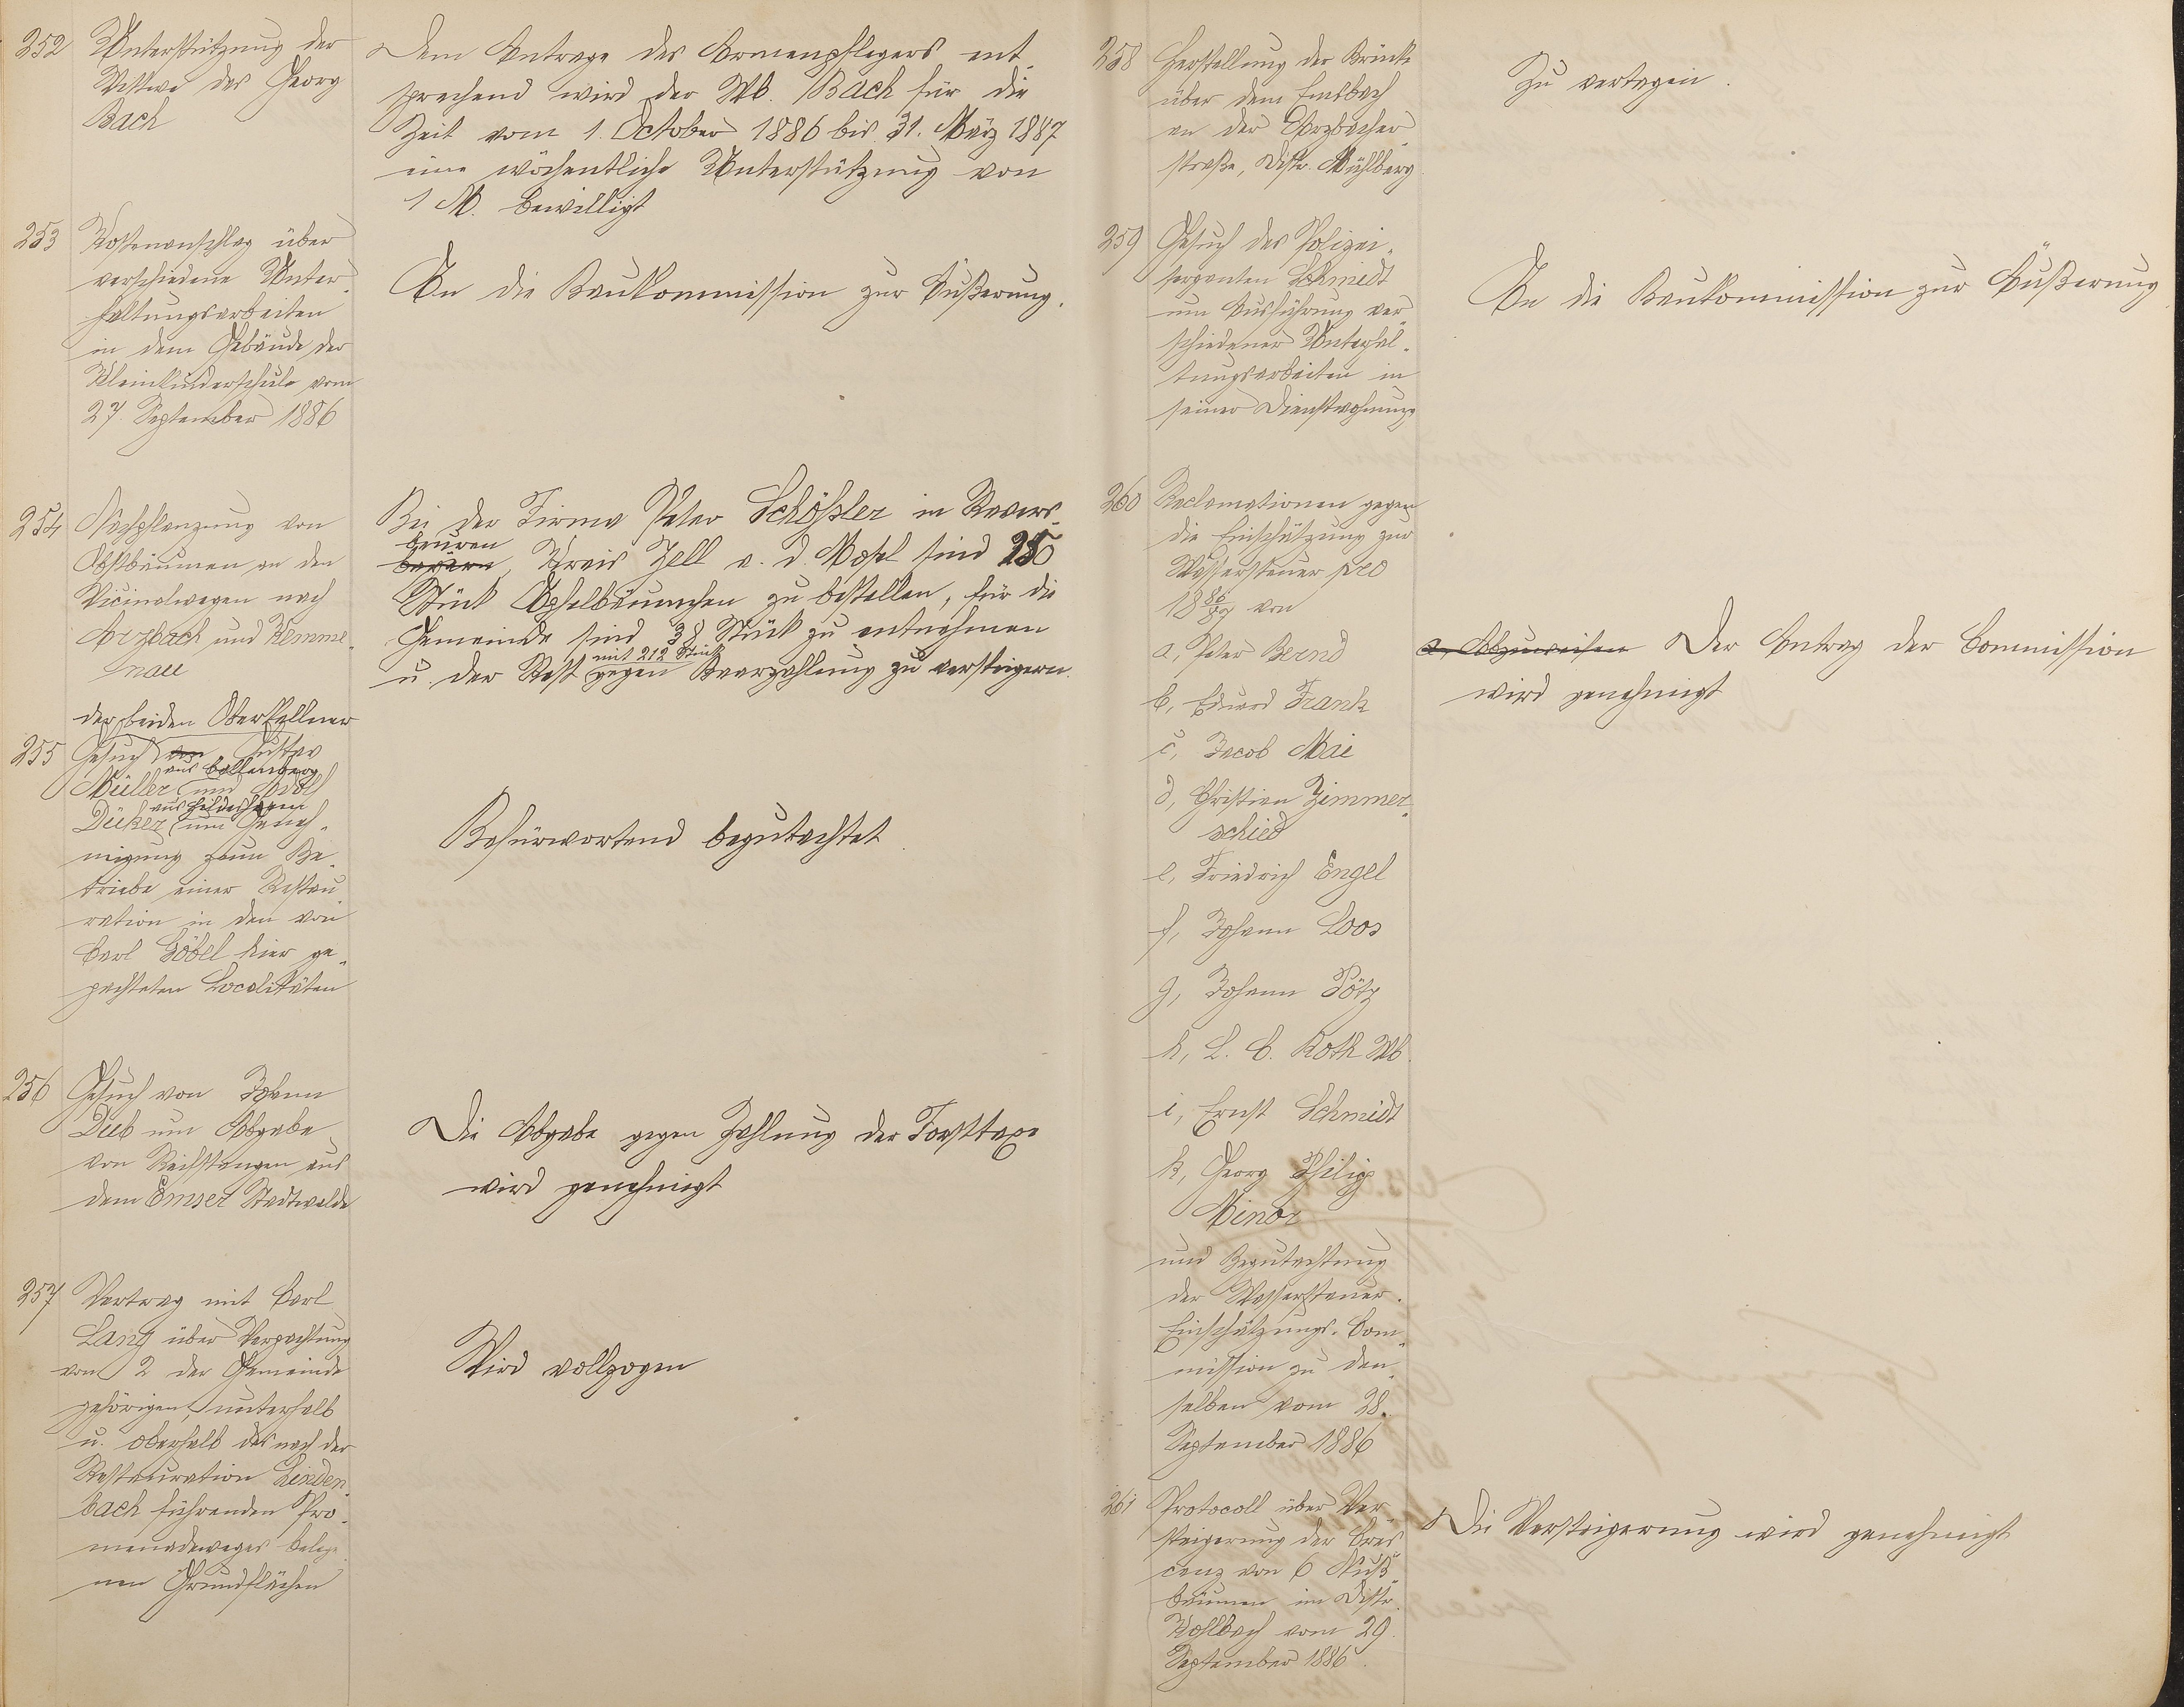 252
Unterstützung der
Wittwe des Georg
Bach
Dem Antrage des Armenpflegers ent-
sprechend wird der Wb. Bach für die
Zeit vom 1. October 1886 bis 31. März 1887
eine wöchentliche Unterstützung von
1 M. bewilligt
253
Kostenanschlag über
verschiedene Unter-
haltungsarbeiten
in dem Gebäude der
Kleinkinderschule vom
27. September 1886
An die Baukommission zur Äußerung.
254
Nachpflanzung von
Obstbäumen an den
Vicinalwegen nach
Arzbach und Kemme-
nau
Bei der Firma Peter Schößler in Revers-
beuren
bevern, Kreis Zell a. d. Mosel sind 250
Stück Apfelbäumchen zu bestellen, für die
Gemeinde sind 38 Stück zu entnehmen
mit 212 Stück
u. der Rest gegen Baarzahlung zu versteigern.
der beiden Oberkellner
255
Gesuch von Gustav
aus Ballenberg
Müller und Adolf
aus Hildesheim
Dücker um Geneh-
migung zum Be-
triebe einer Restau-
ration in den von
Carl Göbel hier ge-
pachteten Localitäten
Befürwortend begutachtet
256
Gesuch von Johann
Dieb um Abgabe
von Reisstangen aus
dem Emser Stadtwalde
Die Abgabe gegen Zahlung der Forsttaxe
wird genehmigt
257
Vertrag mit Carl
Lang über Verpachtung
von 2 der Gemeinde
gehörigen, unterhalb
u. oberhalb des nach der
Restauration Linden-
bach führenden Pro-
menadeweges belege-
nen Grundflächen
Wird vollzogen
258
Herstellung der Brücke
über dem Emsbach
an der Arzbacher-
straße, Distr. Mühlberg
Zu vertagen.
259
Gesuch des Polizei-
sergeanten Schmidt
um Ausführung ver-
schiedener Unterhal-
tungsarbeiten in
seiner Dienstwohnung
An die Baukommission zur Äußerung
260
Reclamationen gegen
die Einschätzung zur
Wassersteuer pro
1886/87 von
a, Peter Bernd
b, Eduard Frank
c, Jacob Mai
d, Christian Zimmer-
schied
e, Friedrich Engel
f, Johann Loos
g, Johann Pötz
h, L. C. Roth Wb.
i, Ernst Schmidt
k, Georg Philipp
Minor
und Begutachtung
der Wassersteuer-
Einschätzungs-Com-
mission zu den-
selben vom 28.
September 1886
a, Abzuweisen Der Antrag der Commission
wird genehmigt
261
Protocoll über Ver-
steigerung der Cres-
cenz von 6 Nuß-
bäumen im Distr.
Kohlbach vom 29.
September 1886.
Die Versteigerung wird genehmigt